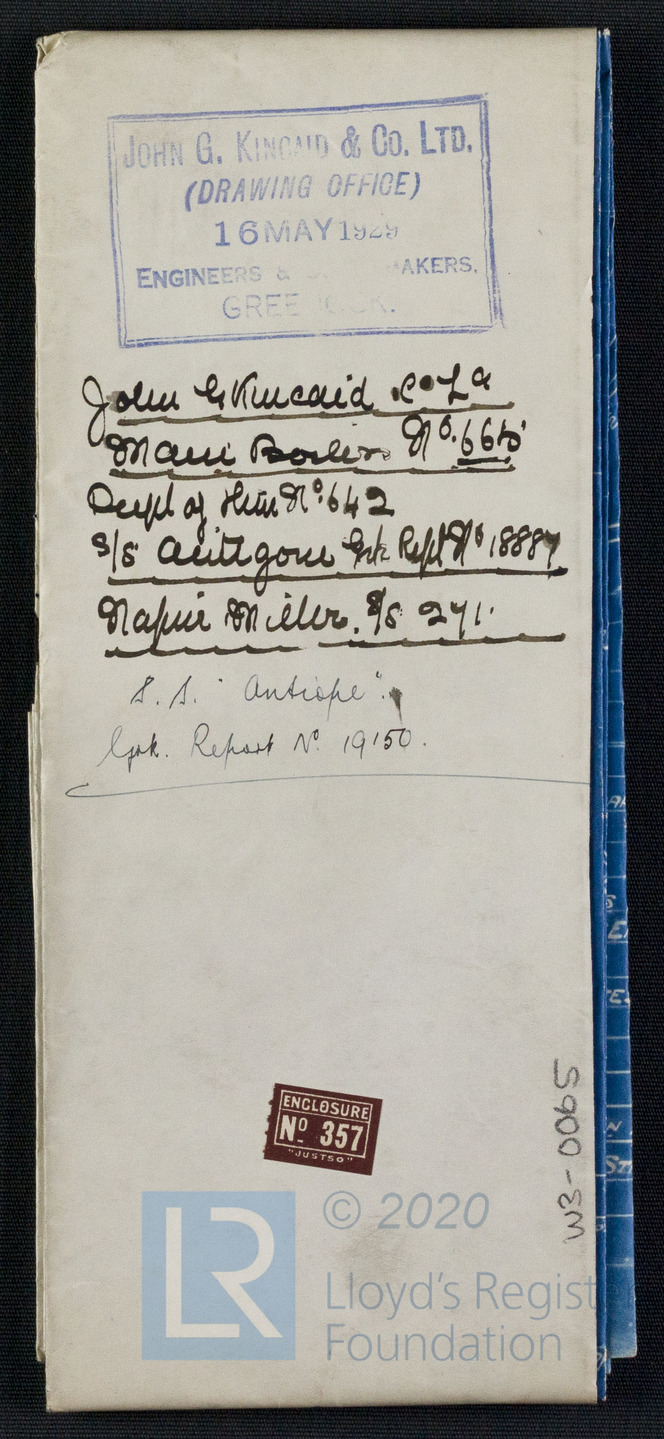 JOHN G. KINCAID & CO. LTD.
(DRAWING OFFICE)
16 MAY 1929
ENGINEERS & AKERS.
GREENOCK.
John G Kincaid & Co Ld
Main Boilers No. 665
Dupl of Him No. 642
S/S Antigone Grk Rept No 18887
Napier Miller. S/S 271.
S. S. "Antiope".
Grk. Report No. 19150.
ENCLOSURE
No 357
"JUSTSO"
W3-0065
LR
© 2020
Lloyd's Regist
Foundation